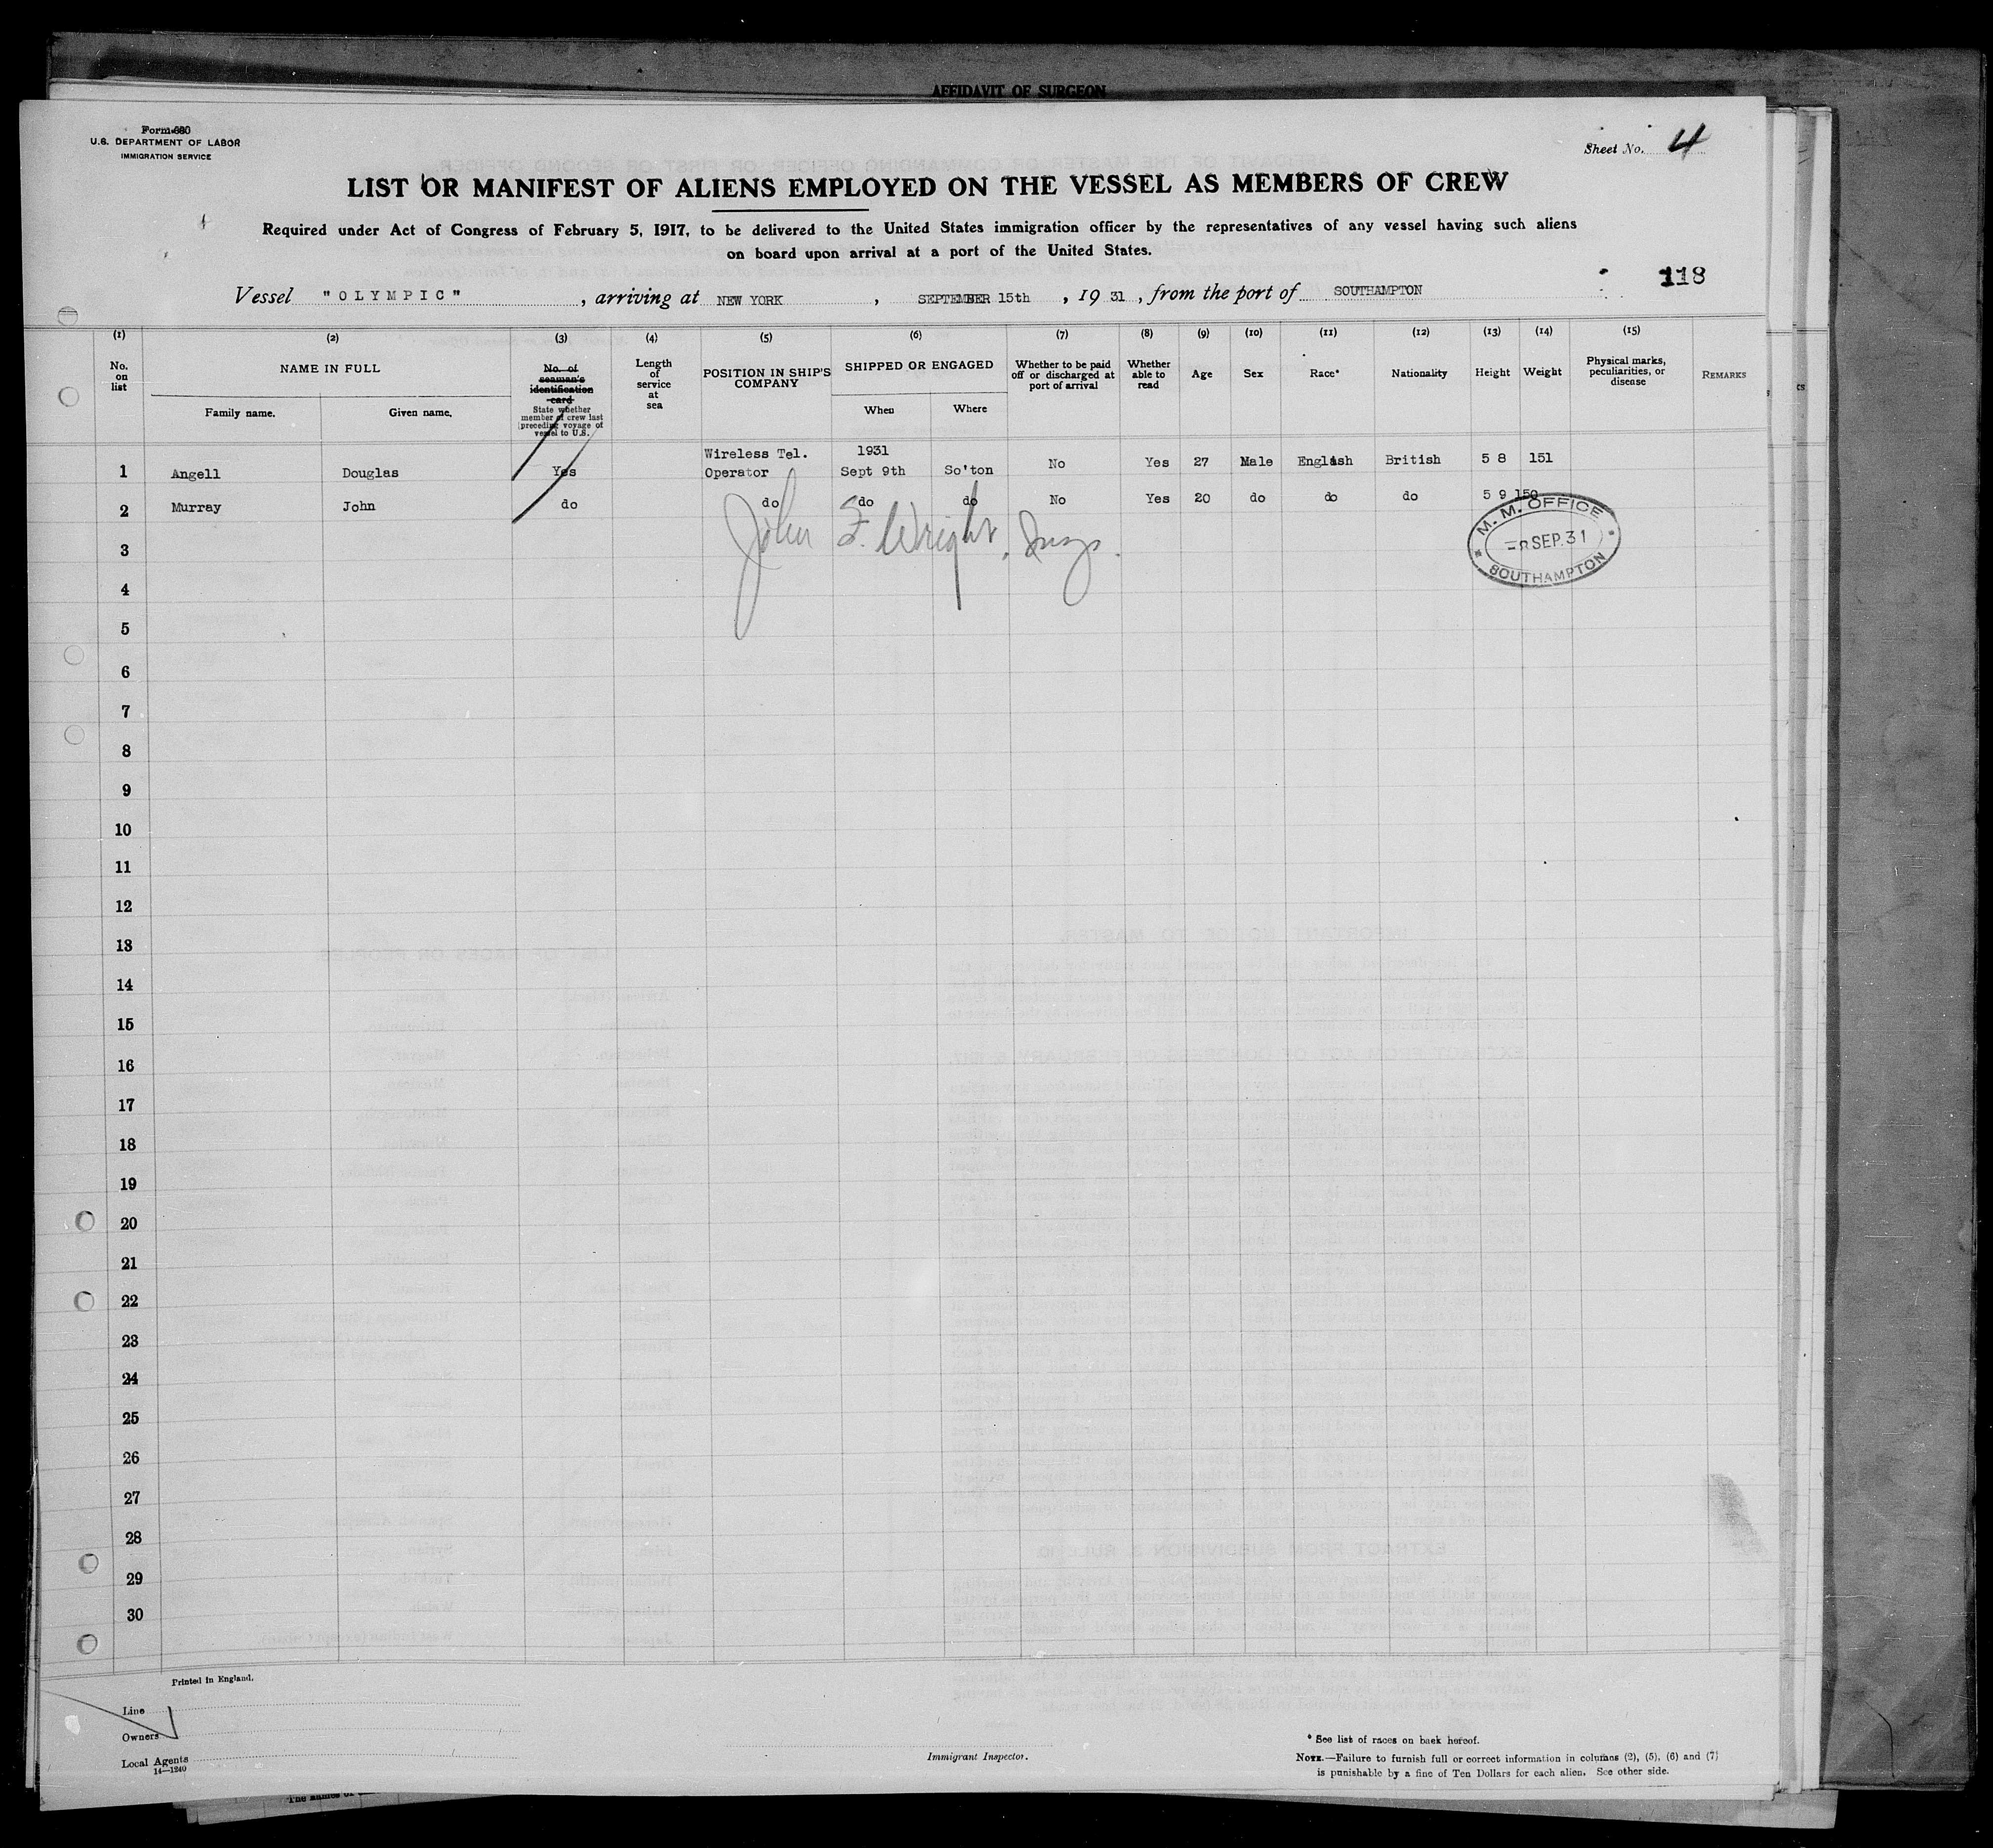 AFFIDAVIT OF SURGEON
Form 680
U.S. DEPARTMENT OF LABOR
IMMIGRATION SERVICE
Sheet No. 4
LIST OR MANIFEST OF ALIENS EMPLOYED ON THE VESSEL AS MEMBERS OF CREW
Required under Act of Congress of February 5, 1917, to be delivered to the United States immigration officer by the representatives of any vessel having such aliens
on board upon arrival at a port of the United States.
118
Vessel "OLYMPIC", arriving at NEW YORK, SEPTEMBER 15th, 1931, from the port of SOUTHAMPTON
(1) (2) (3) (4) (5) (6) (7) (8) (9) (10) (11) (12) (13) (14) (15)
No. on list
NAME IN FULL
Family name. Given name.
No. of seaman's identification card
State whether member of crew last preceding voyage of vessel to U.S.
Length of service at sea
POSITION IN SHIP'S COMPANY
SHIPPED OR ENGAGED
When Where
Whether to be paid off or discharged at port of arrival
Whether able to read
Age
Sex
Race*
Nationality
Height
Weight
Physical marks, peculiarities, or disease
REMARKS
Wireless Tel. 1931
1 Angell Douglas Yes Operator Sept 9th So'ton No Yes 27 Male English British 5 8 151
2 Murray John do do do do No Yes 20 do do do 5 9 150
John F. Wright, Insp.
M. M. OFFICE
SEP. 31
SOUTHAMPTON
3
4
5
6
7
8
9
10
11
12
13
14
15
16
17
18
19
20
21
22
23
24
25
26
27
28
29
30
Printed in England.
Line
Owners
Local Agents
14—1240
Immigrant Inspector.
* See list of races on back hereof.
NOTE.—Failure to furnish full or correct information in columns (2), (5), (6) and (7)
is punishable by a fine of Ten Dollars for each alien. See other side.